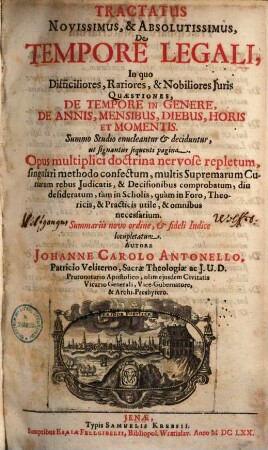 TRACTATUS
NOVISSIMUS, & ABSOLUTISSIMUS,
De
TEMPORE LEGALI,
In quo
Difficiliores, Rariores, & Nobiliores Juris
QUÆSTIONES,
DE TEMPORE IN GENERE,
DE ANNIS, MENSIBUS, DIEBUS, HORIS
ET MOMENTIS.
Summo Studio enucleantur & deciduntur,
ut signantur sequenti pagina.
Opus multiplici doctrina nervosè repletum,
singulari methodo confectum, multis Supremarum Cu-
riarum rebus Judicatis, & Decisionibus comprobatum, diu
desideratum, tam in Scholis, quàm in Foro, Theo-
ricis, & Practicis utile, & omnibus
necessarium.
Summariis novo ordine, & fideli Indice
locupletatum.
AUTORE
JOHANNE CAROLO ANTONELLO,
Patricio Veliterno, Sacræ Theologiæ ac J. U. D.
Protonotario Apostolico, olim ejusdem Civitatis
Vicario Generali, Vice-Gubernatore,
& Archi-Presbytero.
JENÆ,
Typis SAMUELIS KREBSII.
Sumptibus ESAIÆ FELLGIBELII, Bibliopol. Wratislav. Anno M DC LXX.